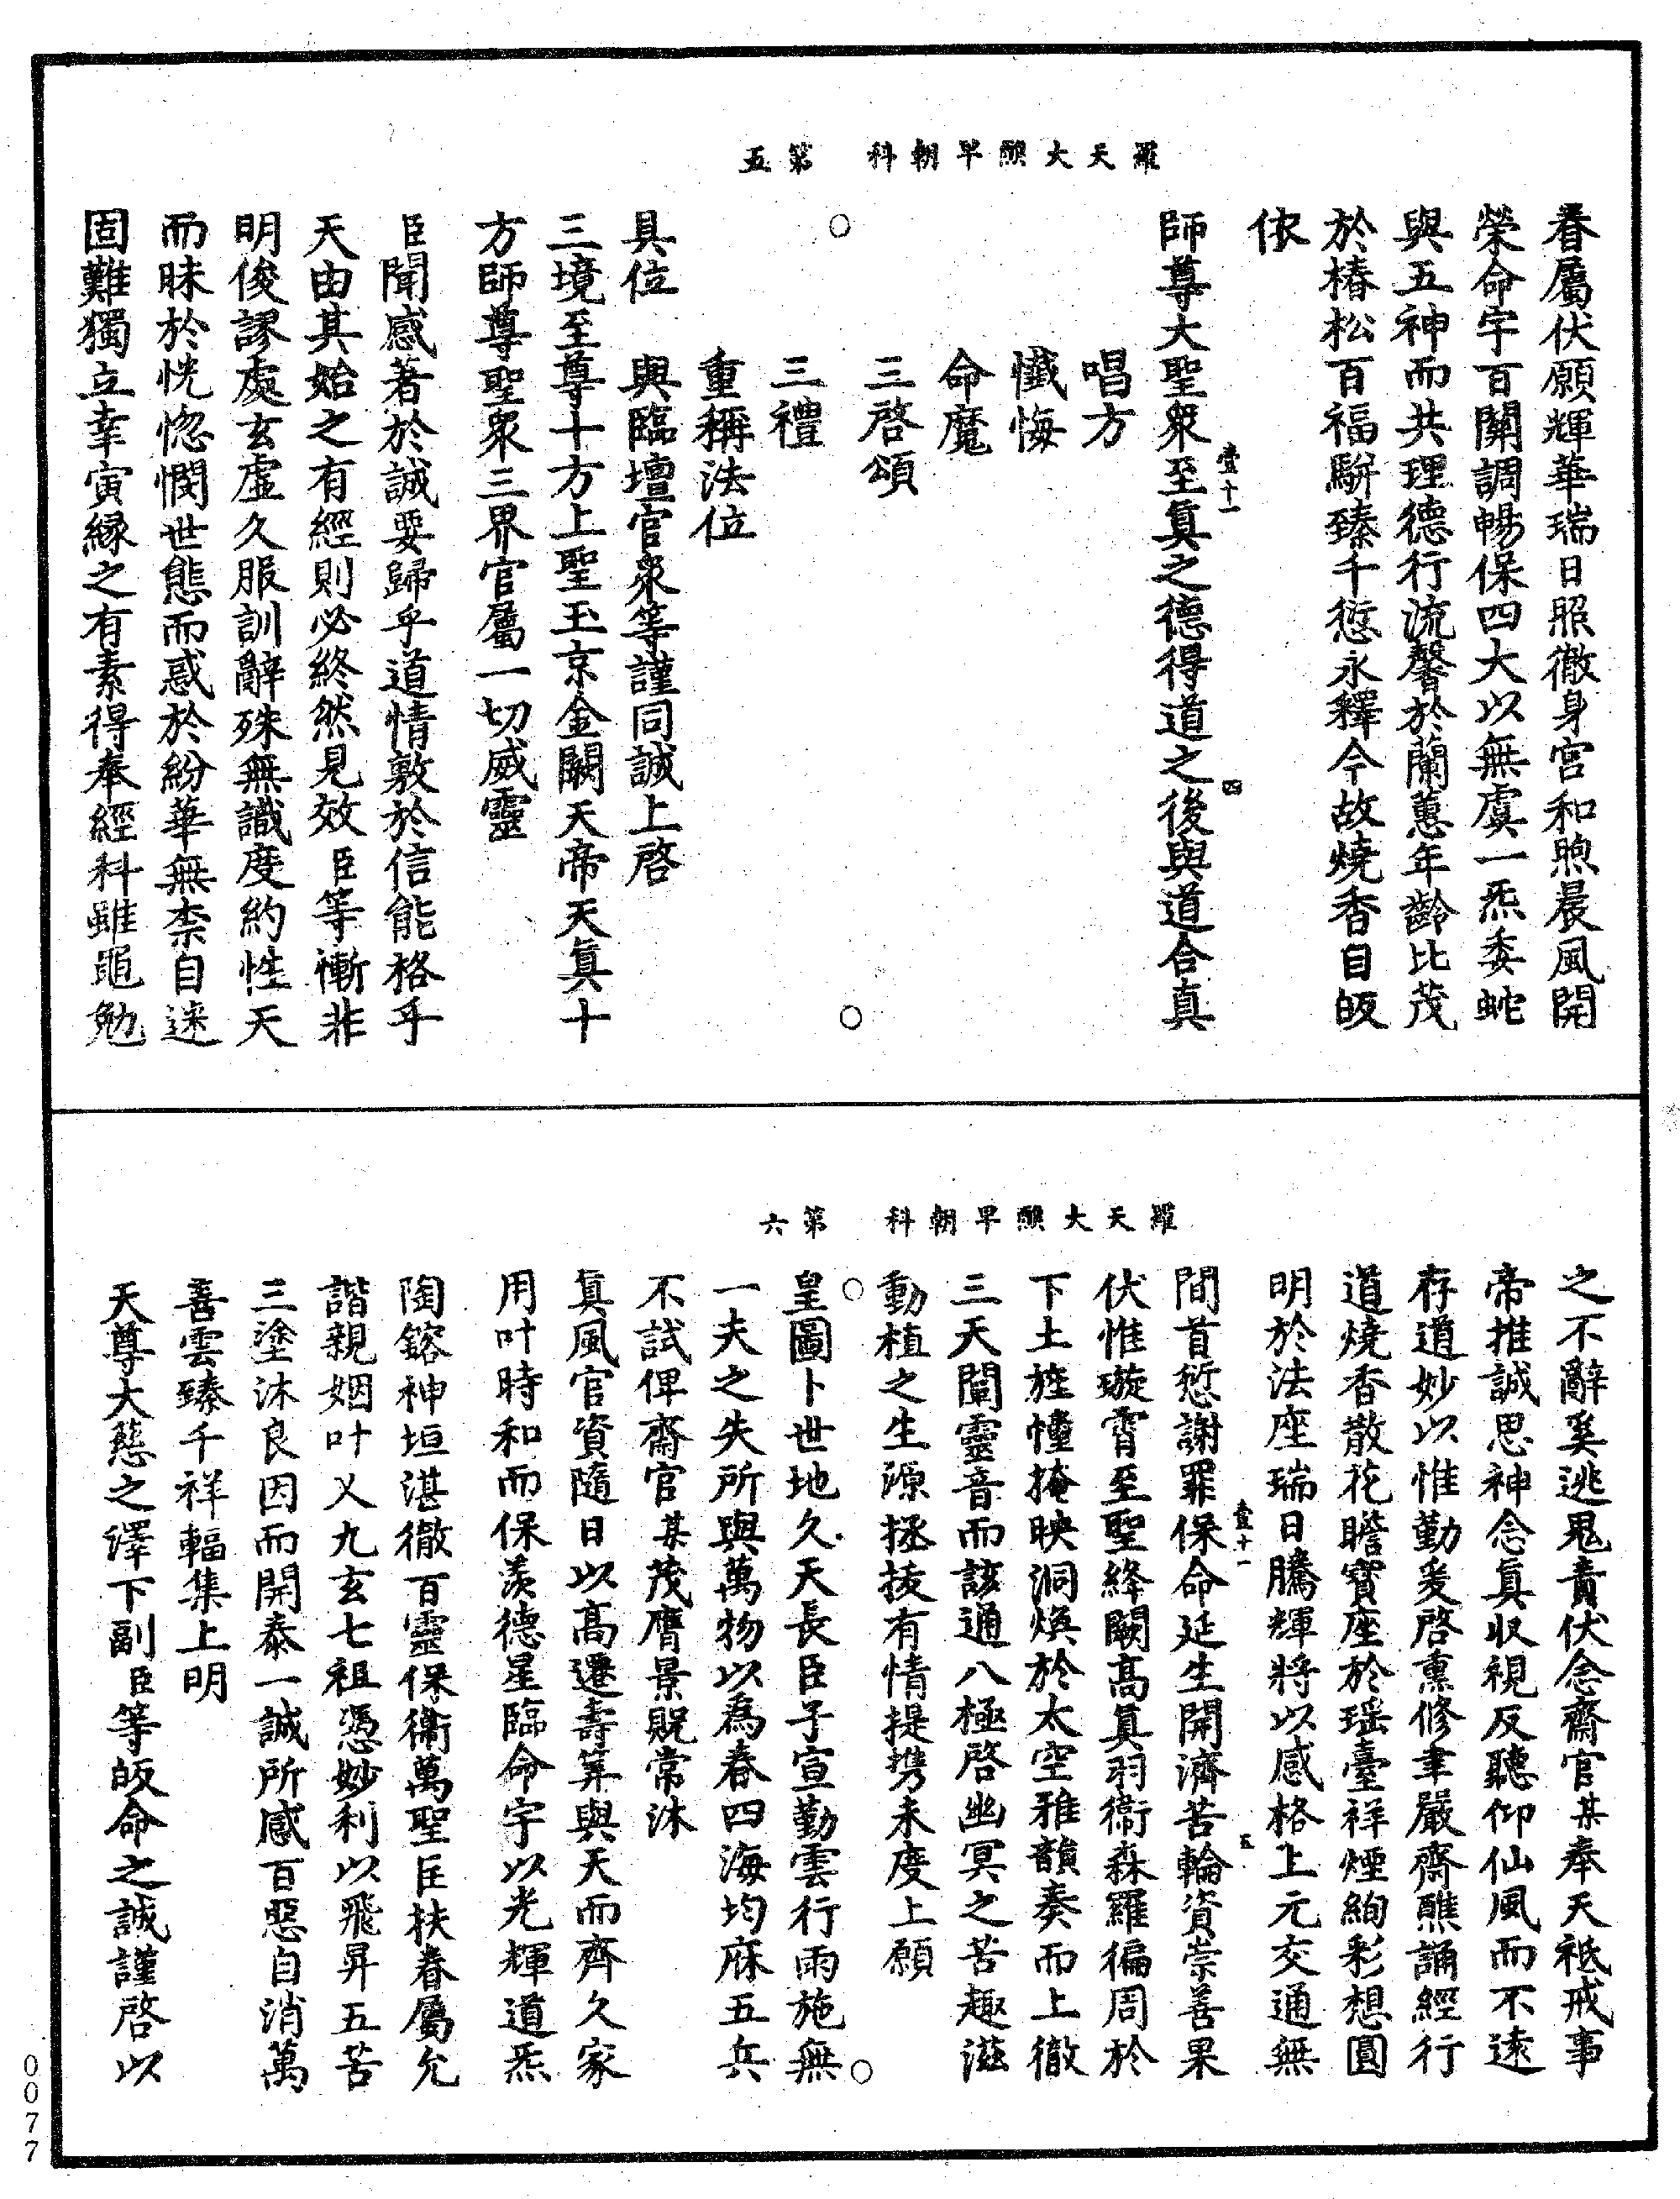 羅天大醮早朝科　第五
眷屬伏願輝華瑞日照徹身宮和煦晨風開
榮命宇百關調暢保四大以無虞一炁委蛇
與五神而共理德行流馨於蘭蕙年齡比茂
於椿松百福駢臻千愆永釋今故燒香自皈
依
師尊大聖衆至眞之德得道之後與道合真
壹十一　四
唱方
懺悔
命魔
三啓頌
三禮
重稱法位
具位　與臨壇官衆等謹同誠上啓
三境至尊十方上聖玉京金闕天帝天眞十
方師尊聖衆三界官屬一切威靈
臣聞感著於誠要歸乎道情敷於信能格乎
天由其始之有經則必終然見效臣等慚非
明俊謬處玄虛久服訓辭殊無識度約性天
而昧於恍惚憫世態而惑於紛華無柰自迷
固難獨立幸寅緣之有素得奉經科雖黽勉
羅天大醮早朝科　第六
之不辭奚逃鬼責伏念齋官某奉天祗戒事
帝推誠思神念眞収視反聽仰仙風而不遠
存道妙以惟勤爰啓熏修聿嚴齋醮誦經行
道燒香散花瞻寶座於瑶臺祥煙絢彩想圓
明於法座瑞日騰輝將以感格上元交通無
間首愆謝罪保命延生開濟苦輪資崇善果
壹十一　五
伏惟璇霄至聖絳闕髙眞羽衞森羅徧周於
下土旌幢掩映洞煥於太空雅韻奏而上徹
三天闡靈音而該通八極啓幽冥之苦趣滋
動植之生源拯拔有情提携未度上願
皇圖卜世地久天長臣子宣勤雲行雨施無
一夫之失所與萬物以爲春四海均庥五兵
不試俾齋官某茂膺景貺常沐
眞風官資隨日以髙遷壽筭與天而齊久家
用叶時和而保羨德星臨命宇以光輝道炁
陶鎔神垣湛徹百靈保衞萬聖匡扶眷屬允
諧親姻叶乂九玄七祖憑妙利以飛昇五苦
三塗沐良因而開泰一誠所感百惡自消萬
善雲臻千祥輻集上明
天尊大慈之澤下副臣等皈命之誠謹啓以
0077